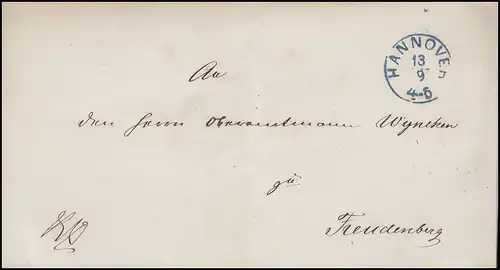 HANNOVER
13
9
4-5
An
den Herrn Oberamtmann Wyneken
zu
Freudenberg